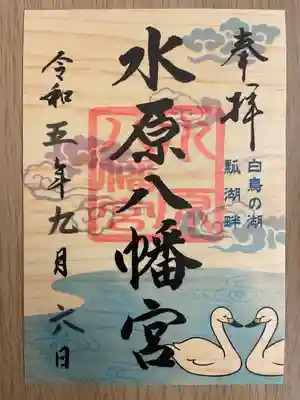 奉拝
白鳥の湖
瓢湖畔
水原八幡宮
令和五年九月六日